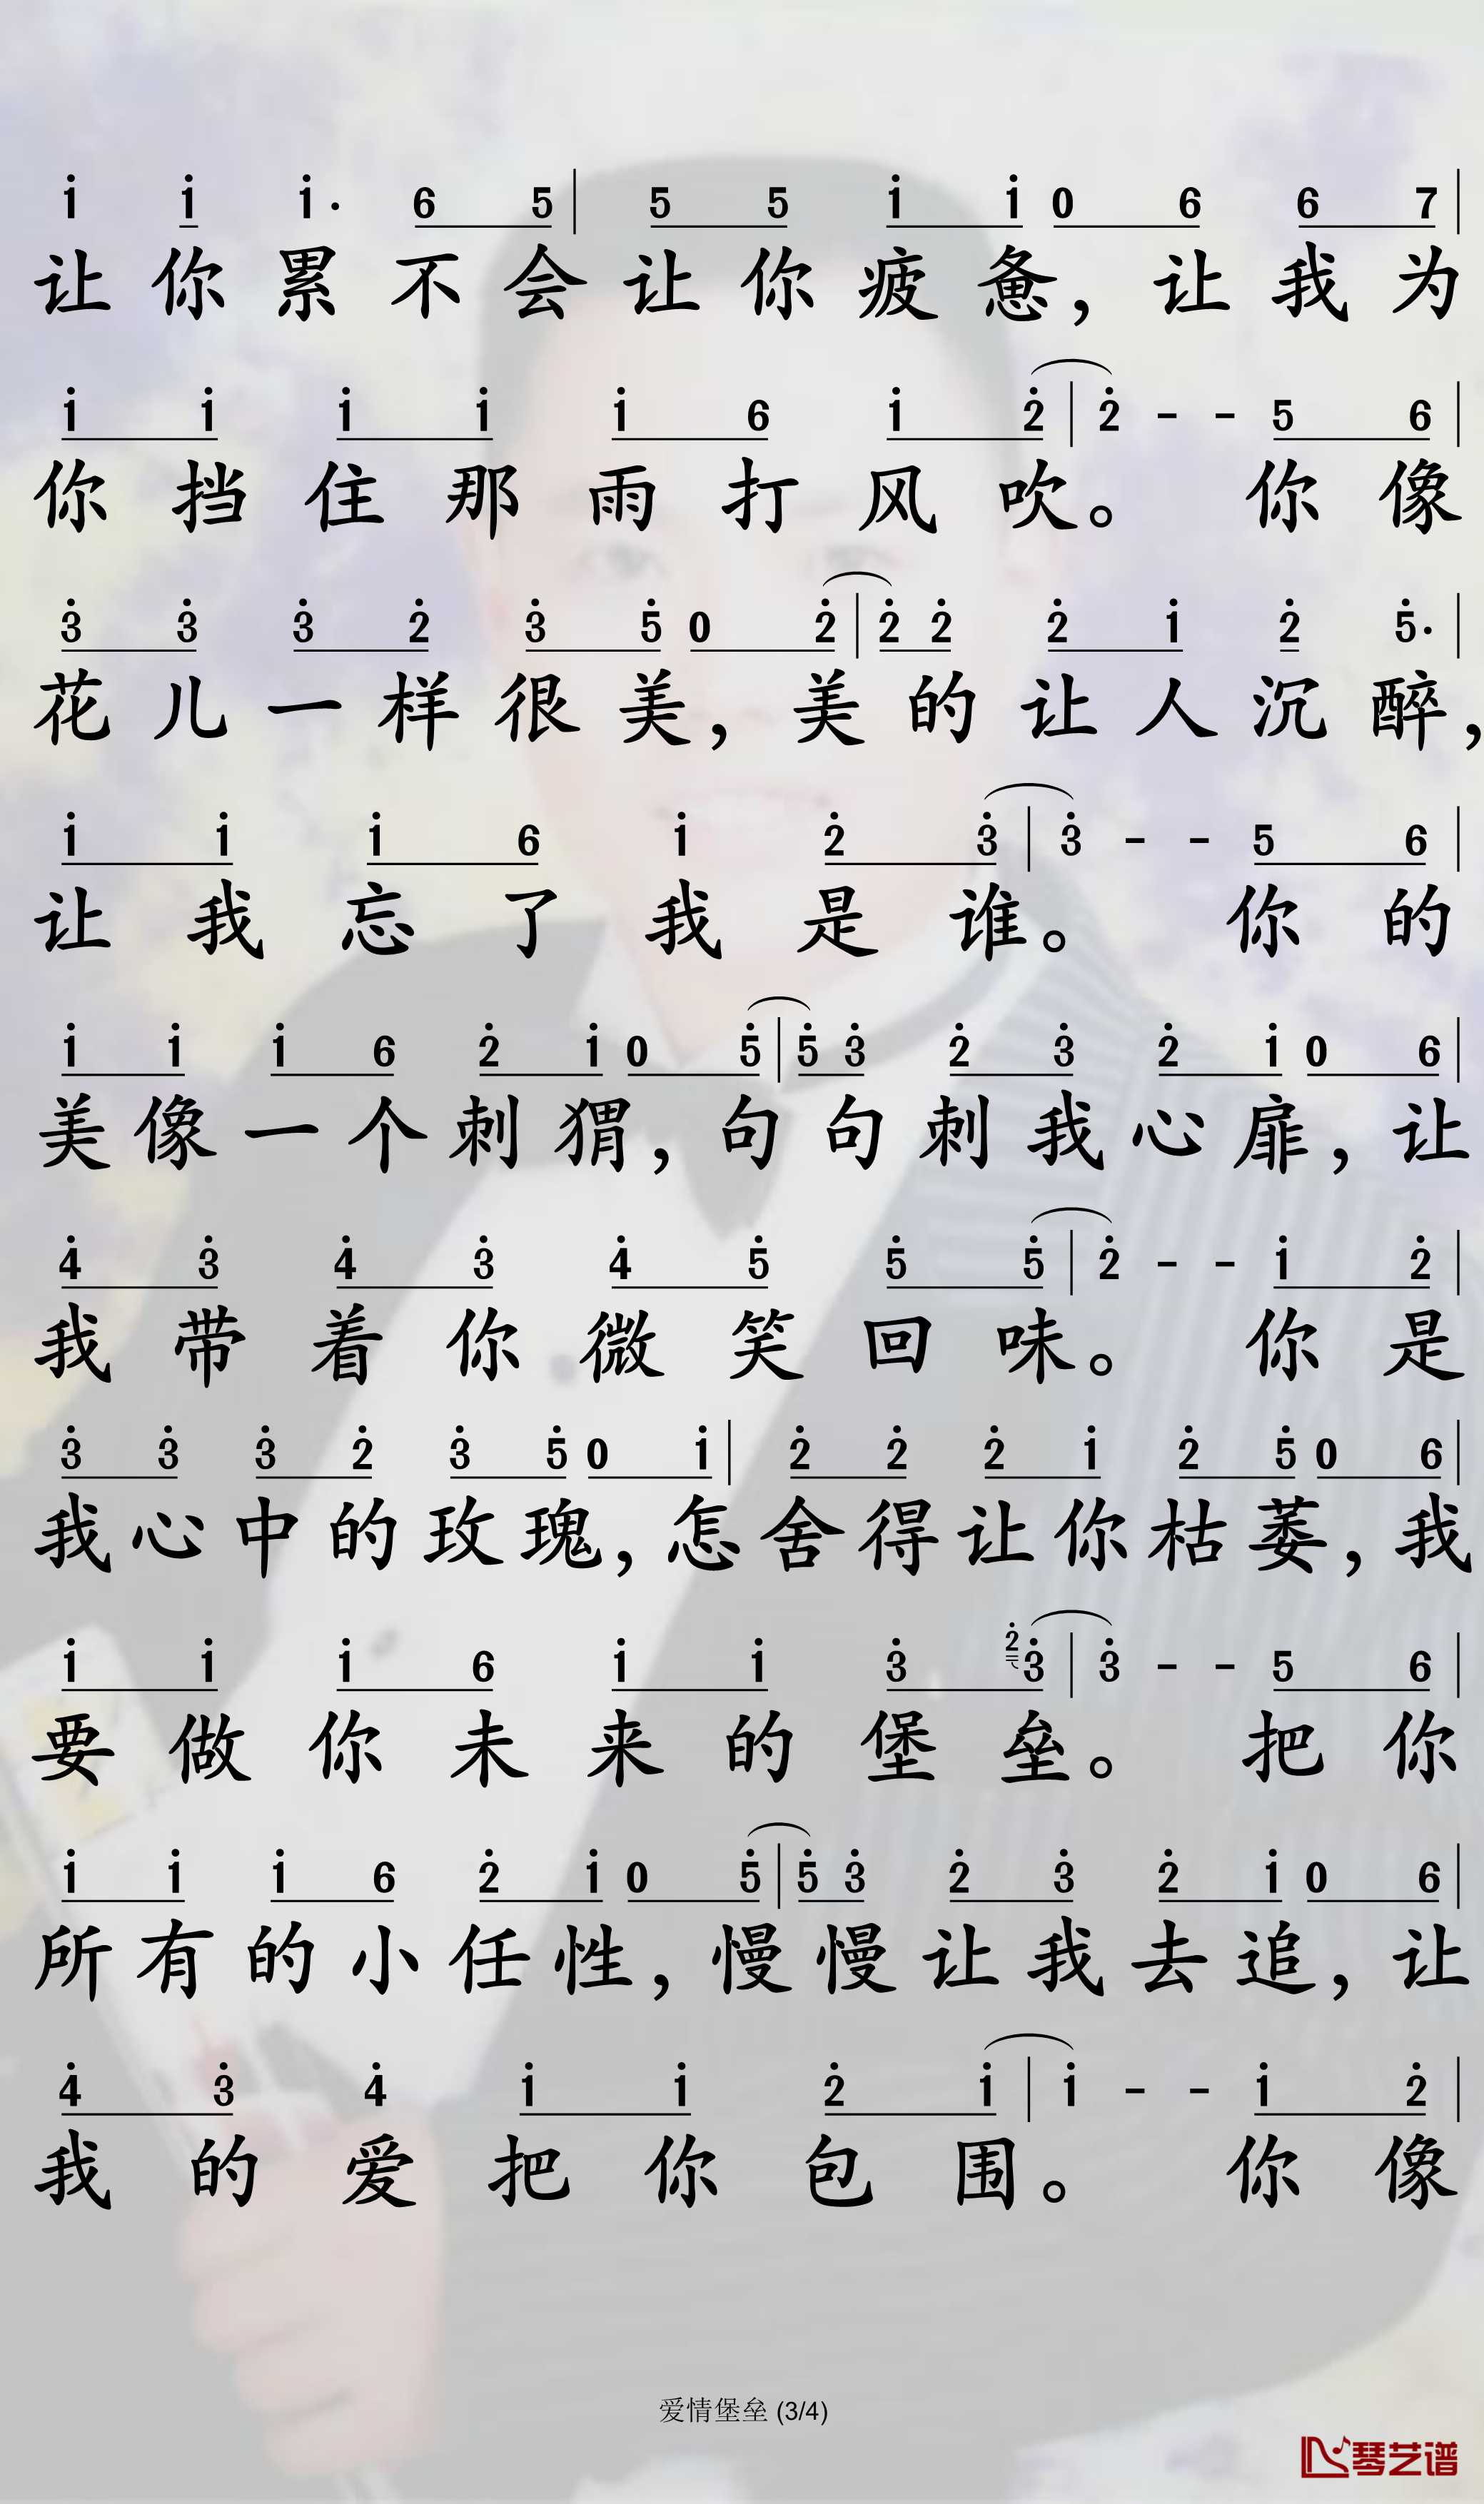 1̇ 1̇ 1̇· 6 5 | 5 5 1̇ 1̇ 0 6 6 7 |
让你累不会让你疲惫，让我为
1̇ 1̇ 1̇ 1̇ 1̇ 6 1̇ 2̇ | 2̇ - - 5 6 |
你挡住那雨打风吹。你像
3̇ 3̇ 3̇ 2̇ 3̇ 5̇ 0 2̇ | 2̇ 2̇ 2̇ 1̇ 2̇ 5̇· |
花儿一样很美，美的让人沉醉，
1̇ 1̇ 1̇ 6 1̇ 2̇ 3̇ | 3̇ - - 5 6 |
让我忘了我是谁。你的
1̇ 1̇ 1̇ 6 2̇ 1̇ 0 5̇ | 5̇ 3̇ 2̇ 3̇ 2̇ 1̇ 0 6 |
美像一个刺猬，句句刺我心扉，让
4̇ 3̇ 4̇ 3̇ 4̇ 5̇ 5̇ 5̇ | 2̇ - - 1̇ 2̇ |
我带着你微笑回味。你是
3̇ 3̇ 3̇ 2̇ 3̇ 5̇ 0 1̇ | 2̇ 2̇ 2̇ 1̇ 2̇ 5̇ 0 6 |
我心中的玫瑰，怎舍得让你枯萎，我
1̇ 1̇ 1̇ 6 1̇ 1̇ 3̇ 2̇ 3̇ | 3̇ - - 5 6 |
要做你未来的堡垒。把你
1̇ 1̇ 1̇ 6 2̇ 1̇ 0 5̇ | 5̇ 3̇ 2̇ 3̇ 2̇ 1̇ 0 6 |
所有的小任性，慢慢让我去追，让
4̇ 3̇ 4̇ 1̇ 1̇ 2̇ 1̇ | 1̇ - - 1̇ 2̇ |
我的爱把你包围。你像
爱情堡垒 (3/4)
琴艺谱